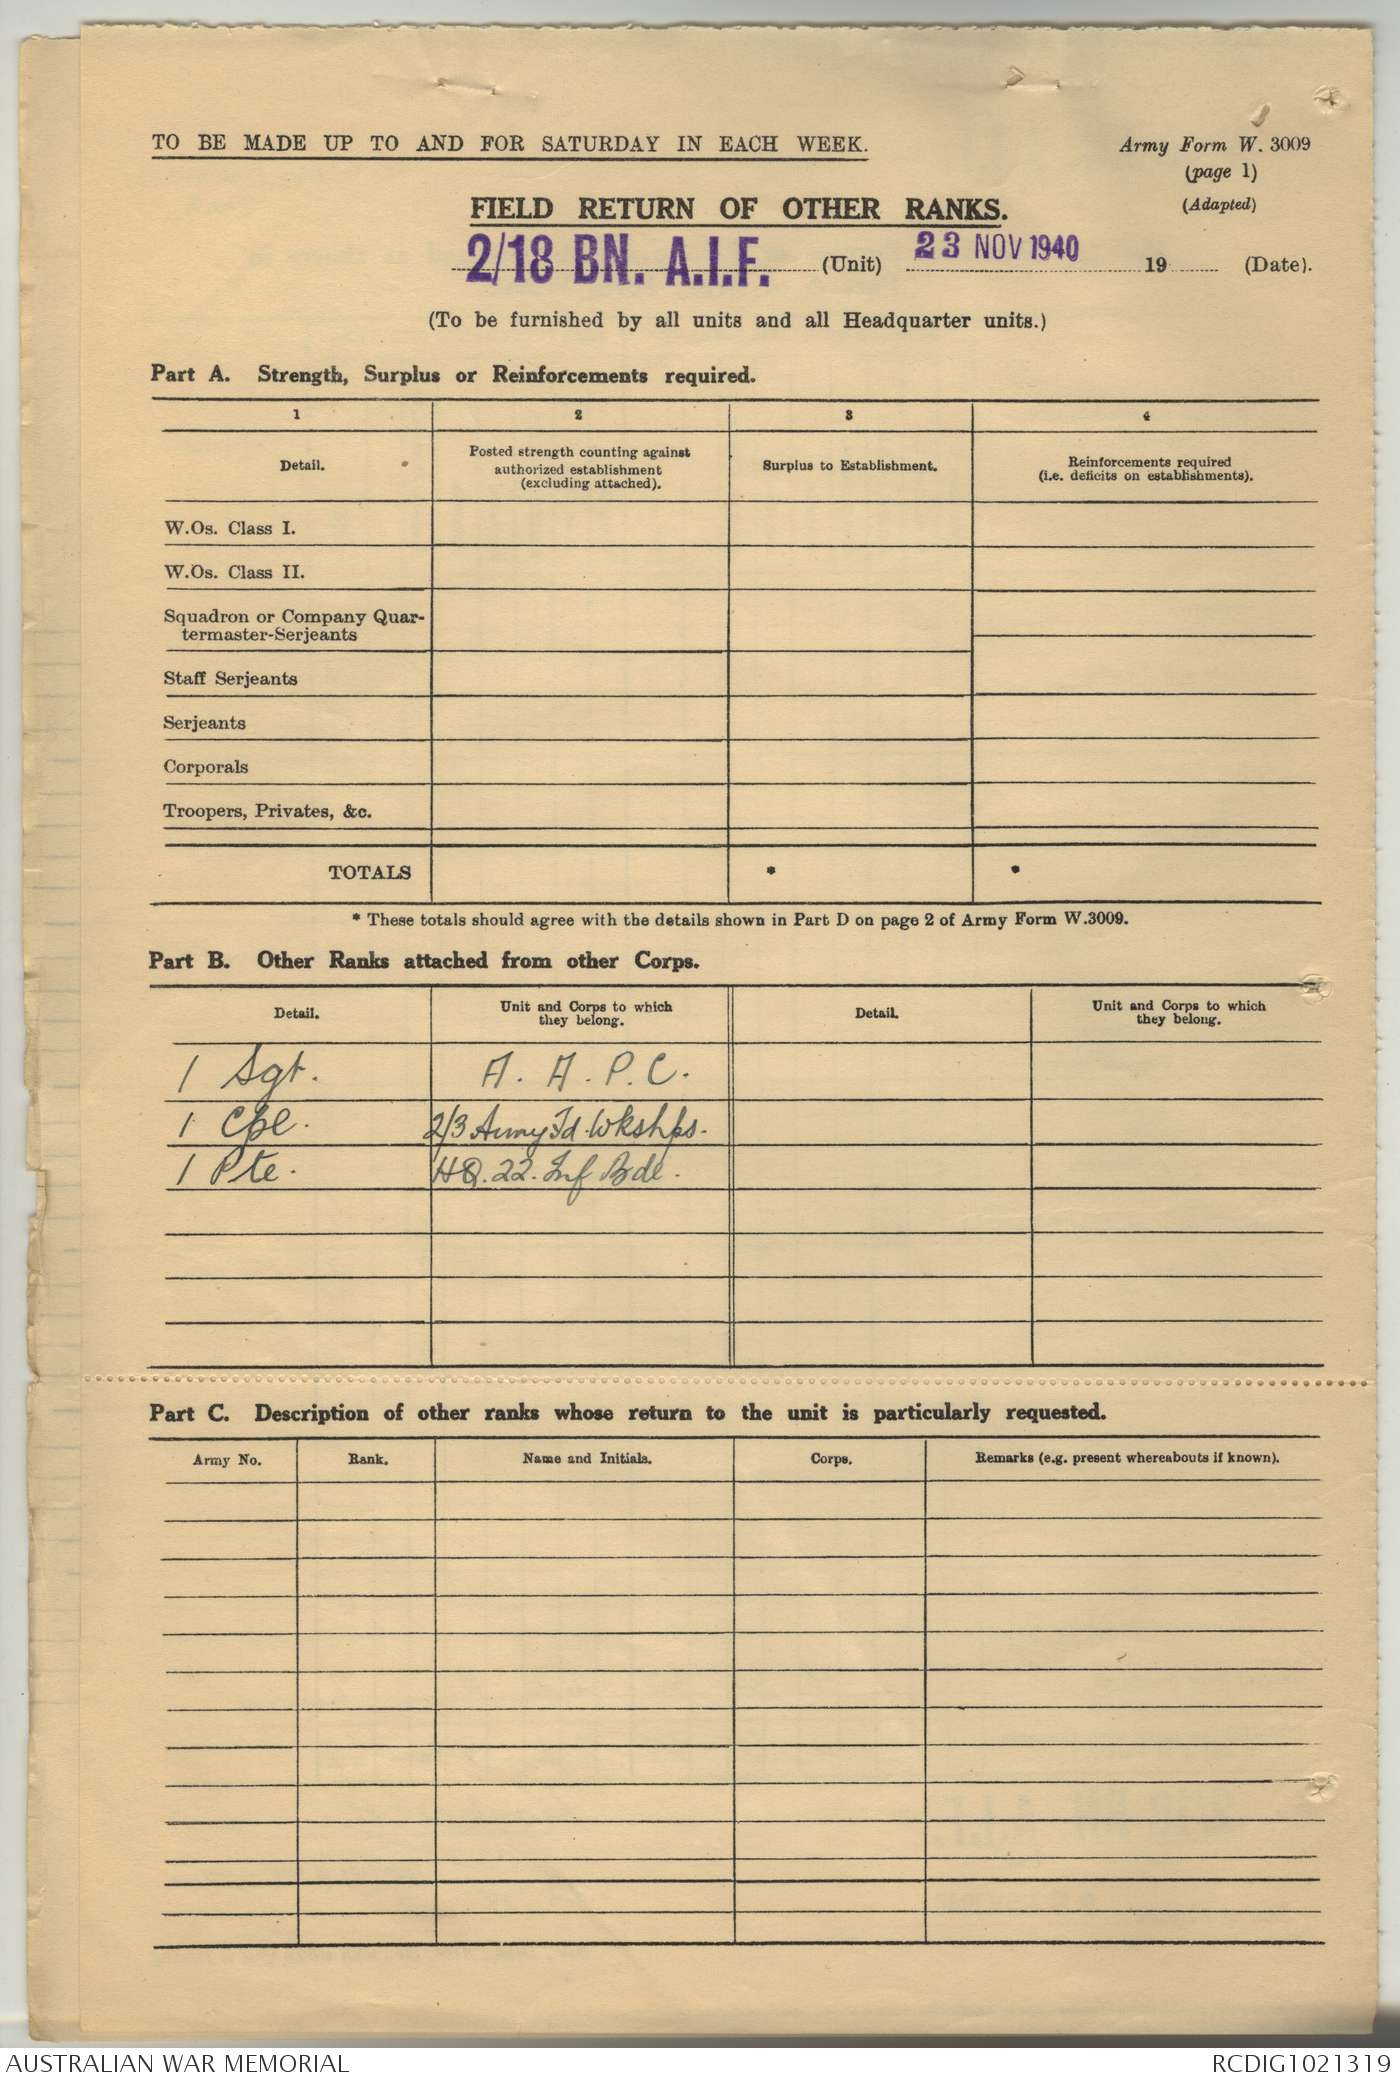 TO BE MADE UP TO AND FOR SATURDAY IN EACH WEEK.
Army Form W. 3009
(page 1)
(Adapted)
FIELD RETURN OF OTHER RANKS.
2/18 BN. A.I.F. (Unit) 23 NOV 1940 19 (Date).
(To be furnished by all units and all Headquarter units.)
Part A. Strength, Surplus or Reinforcements required.
1 2 3 4
Detail. Posted strength counting against authorized establishment (excluding attached). Surplus to Establishment. Reinforcements required (i.e. deficits on establishments).
W.Os. Class I.
W.Os. Class II.
Squadron or Company Quar-
termaster-Serjeants
Staff Serjeants
Serjeants
Corporals
Troopers, Privates, &c.
TOTALS * *
* These totals should agree with the details shown in Part D on page 2 of Army Form W.3009.
Part B. Other Ranks attached from other Corps.
Detail. Unit and Corps to which they belong. Detail. Unit and Corps to which they belong.
1 Sgt. A. A. P. C.
1 Cpl. 2/3 Army Fd. Wkshps.
1 Pte. HQ. 22. Inf Bde.
Part C. Description of other ranks whose return to the unit is particularly requested.
Army No. Rank. Name and Initials. Corps. Remarks (e.g. present whereabouts if known).
AUSTRALIAN WAR MEMORIAL RCDIG1021319